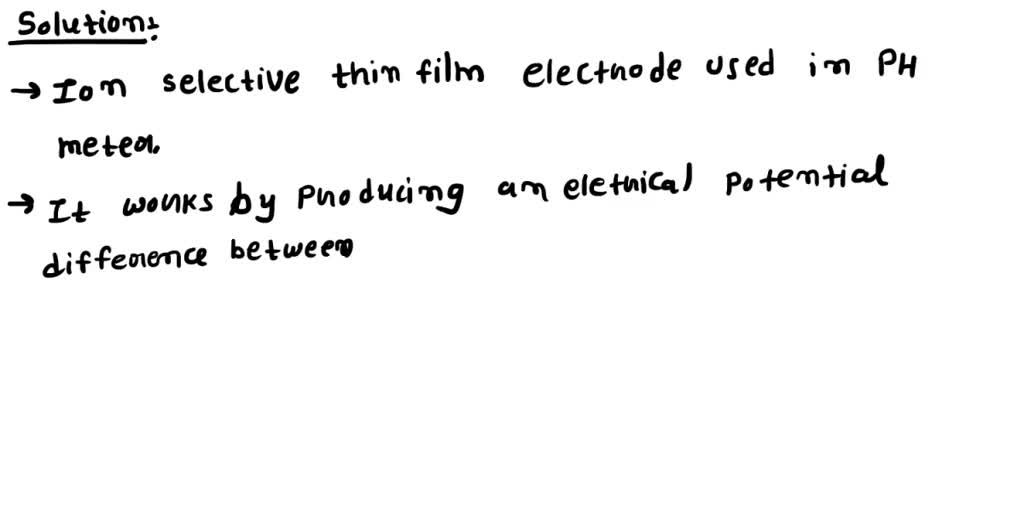 Solution:
→ Ion selective thin film electrode used in PH
meter.
→ It works by producing an eletrical potential
difference between